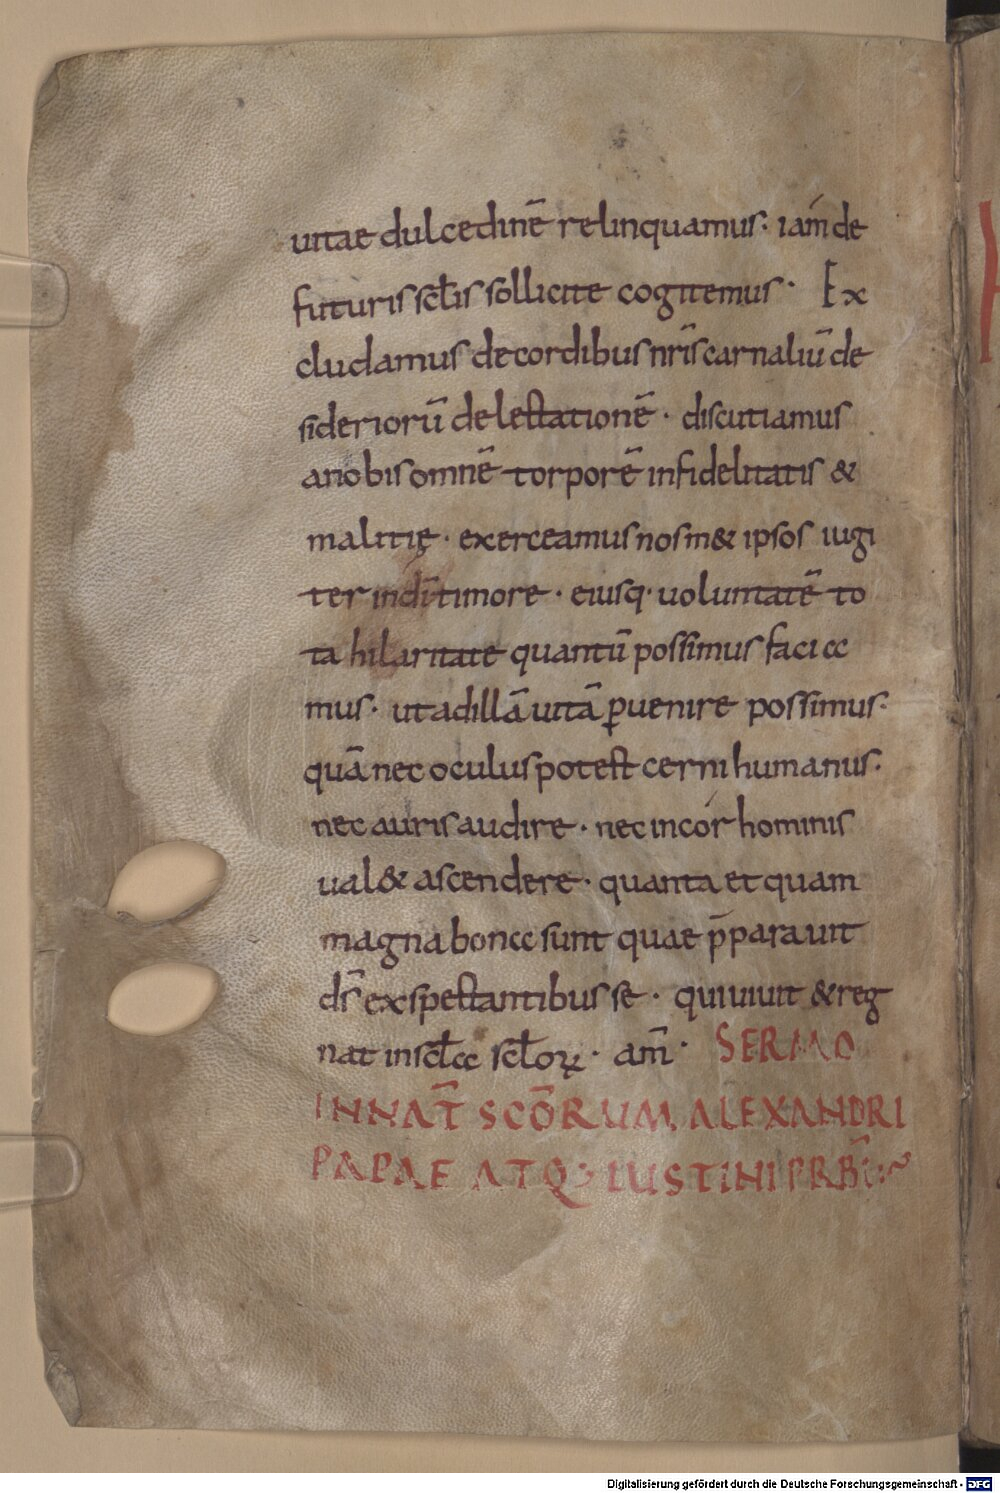 uitae dulcedinē relinquamus· iam de
futuris scl̄is sollicite cogitemus· Ex
cludamus de cordibus nr̄is carnaliū de
sideriorū delectationē· discutiamus
a nobis omnē torporē infidelitatis &
malitię· exerceamus nosm& ipsos iugi
ter in dī timore· eiusq· uoluntatē to
ta hilaritate quantū possimus facia
mus· ut ad illā uitā ꝑuenire possimus·
quā nec oculus potest cerni humanus·
nec auris audire· nec in cor hominis
ual& ascendere· quanta et quam
magna bona sunt quae p̄parauit
ds̄ exspectantibus se· qui uiuit & reg
nat in scl̄a scl̄oꝝ· am̄· SERMO
IN NAT̄ SCŌRUM ALEXANDRI
PAPAE ATQ; IUSTINI PRB̄I
Digitalisierung gefördert durch die Deutsche Forschungsgemeinschaft - DFG